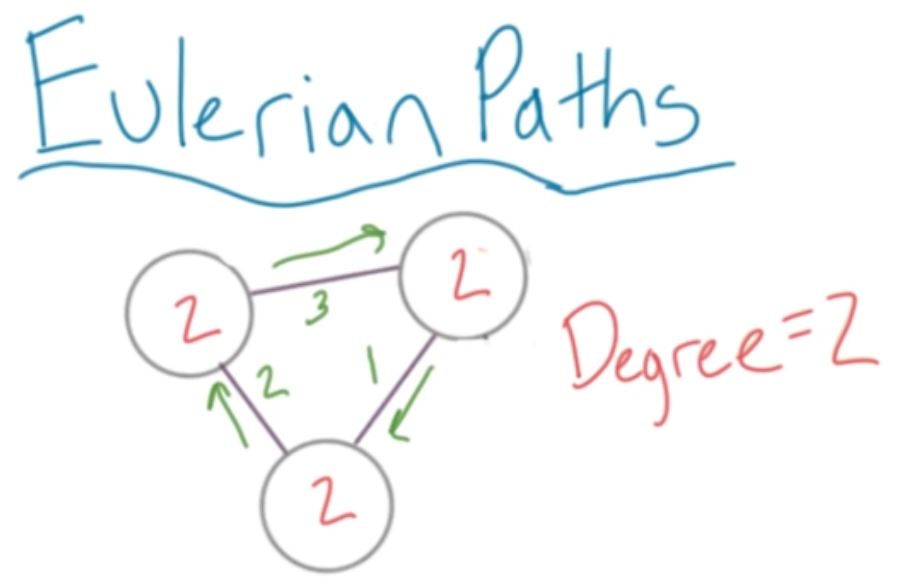 Eulerian Paths
2
3
2
2
1
2
Degree=2